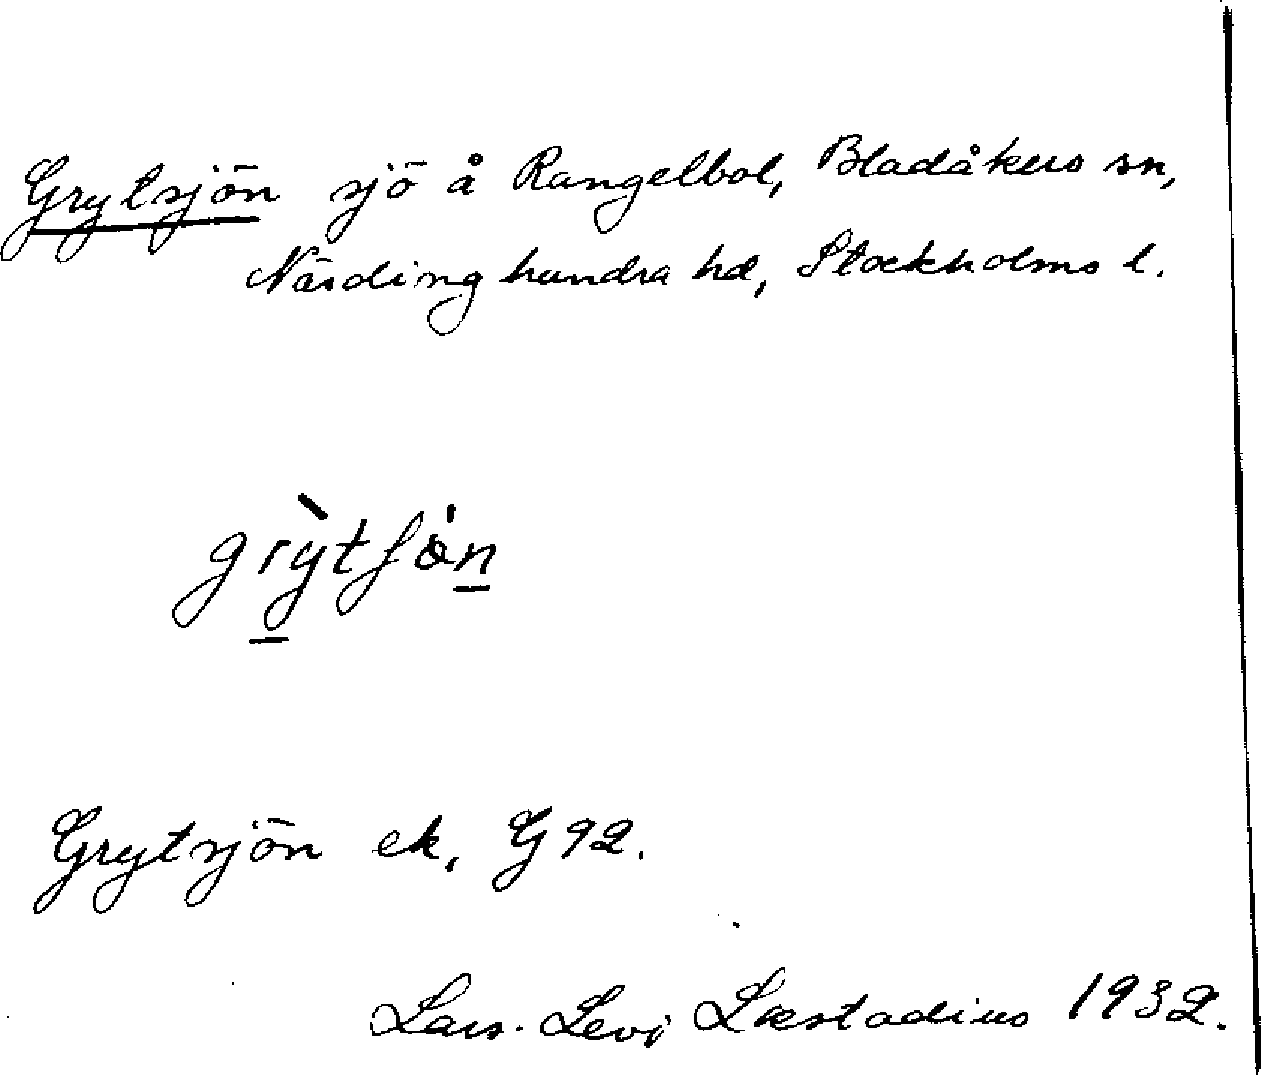 Grytsjön sjö å Rangelbol, Bladåkers sn,
Närdinghundra hd, Stockholms l.
Grytsjön ek, G 92.
Lars-Levi Læstadius 1932.